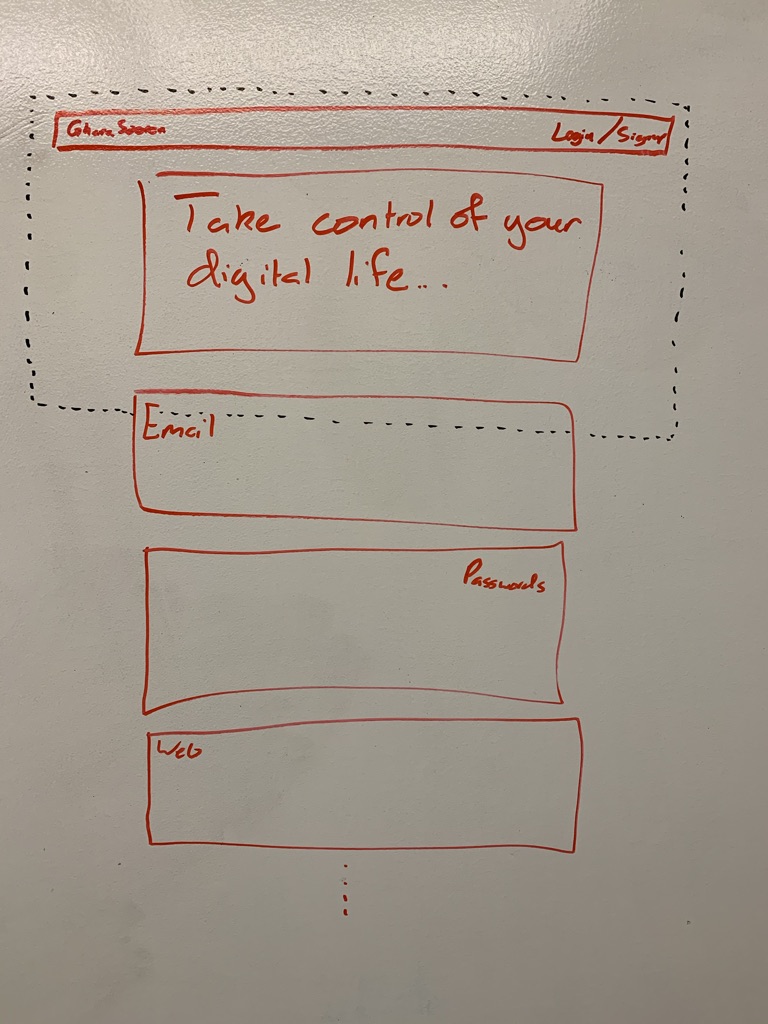 Login/Signup
Take control of your
digital life...
Email
Passwords
Web